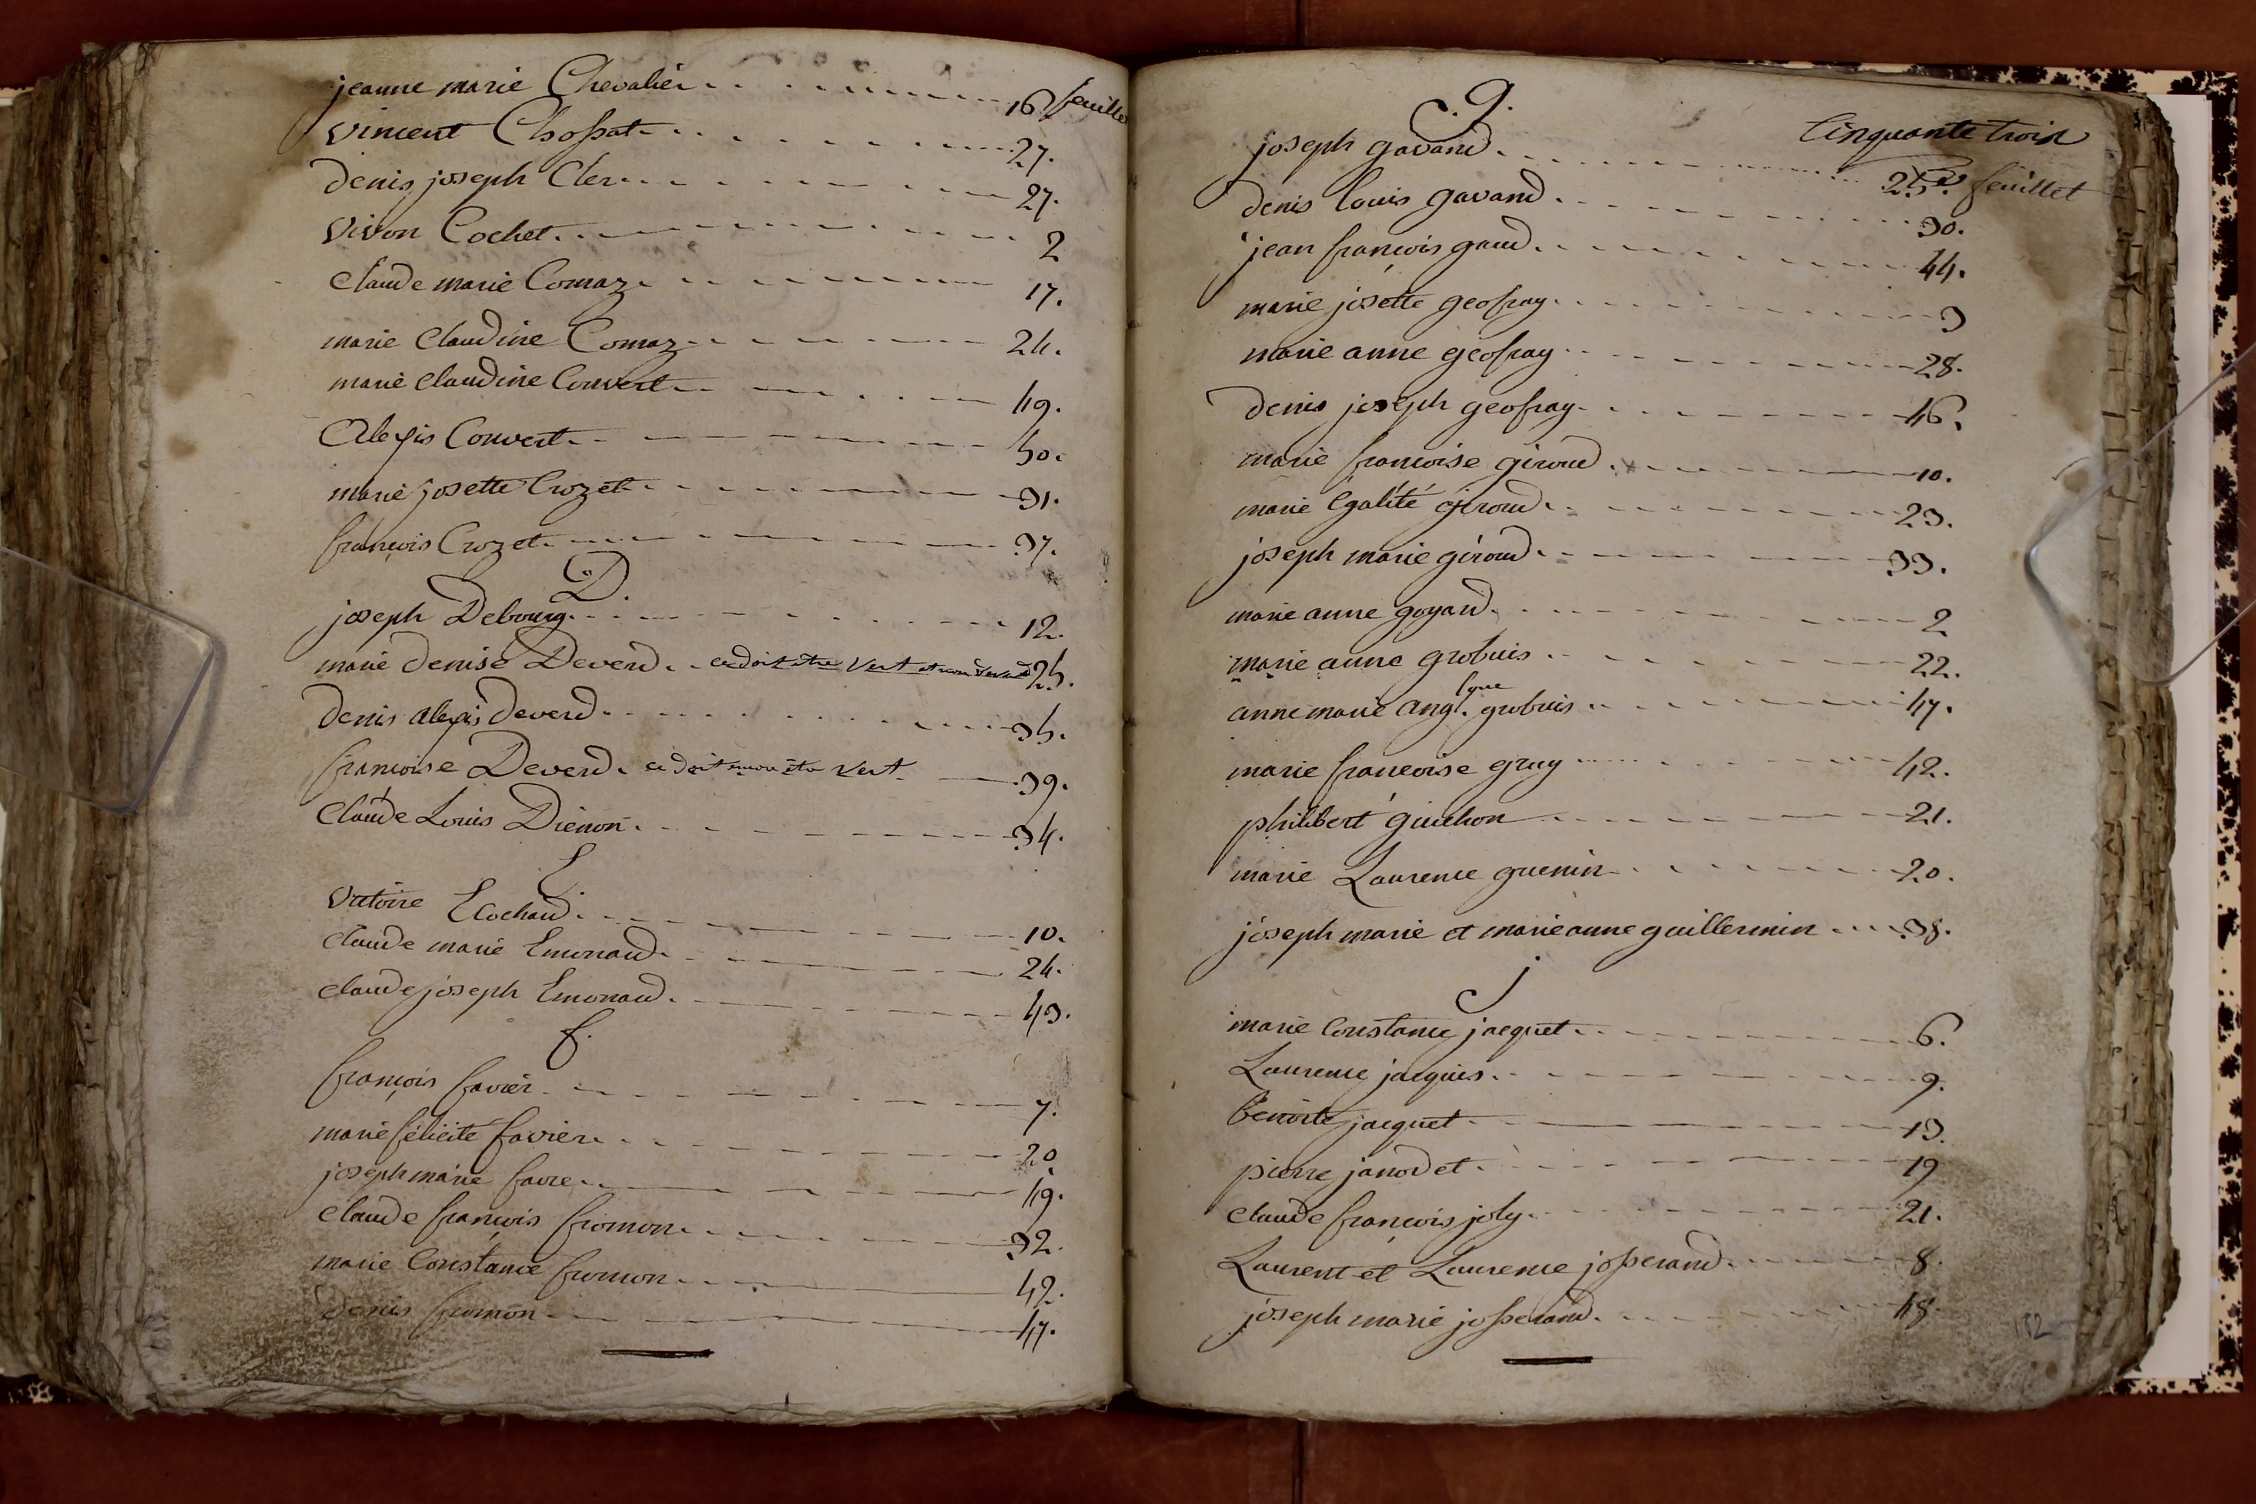 jeanne marie Chevalier 16 feuillet
Vincent Chossat 27.
denis joseph Cler 27.
Vivon Cochet 2
Claude marie Comaz 17.
marie Claudine Comaz 24.
marie Claudine Convert 49.
Alexis Convert 50.
marie josette Crozet 31.
françois Crozet 37.
D.
joseph Debourg 12.
marie denise Deverd ce doit être Vert et non deverd 25.
denis alexis deverd 35.
francoise Deverd ce doit être Vert 39.
Claude Louis Dienon 34.
E.
Victoire Ecochard 10.
Claude marie Emonaud 24.
Claude joseph Emonaud 43.
f.
françois favier 7.
marie félicité favier 20
joseph marie favre 49.
Claude françois fromon 32.
marie Constance fromon 42.
denis fromon 47.
g.
Cinquante trois
joseph gavand 25. feuillet
denis louis gavand 30.
jean françois gaud 44.
marie josette geofray 3
marie anne geofray 28.
denis joseph geofray 46.
marie francoise giroud 10.
marie Egalité giroud 23.
joseph marie giroud 33.
marie anne goyard 2
marie anne grobuis 22.
anne marie ang.lque grobuis 47.
marie francoise gruy 42.
philibert guichon 21.
marie Laurence guenin 20.
joseph marie et marie anne guillermin 38.
j
marie Constance jacquet 6.
Laurence jacques 9.
benoite jacquet 13.
pierre janodet 19
Claude françois joly 21.
Laurent et Laurence josserand 8.
joseph marie josserand 48.
152